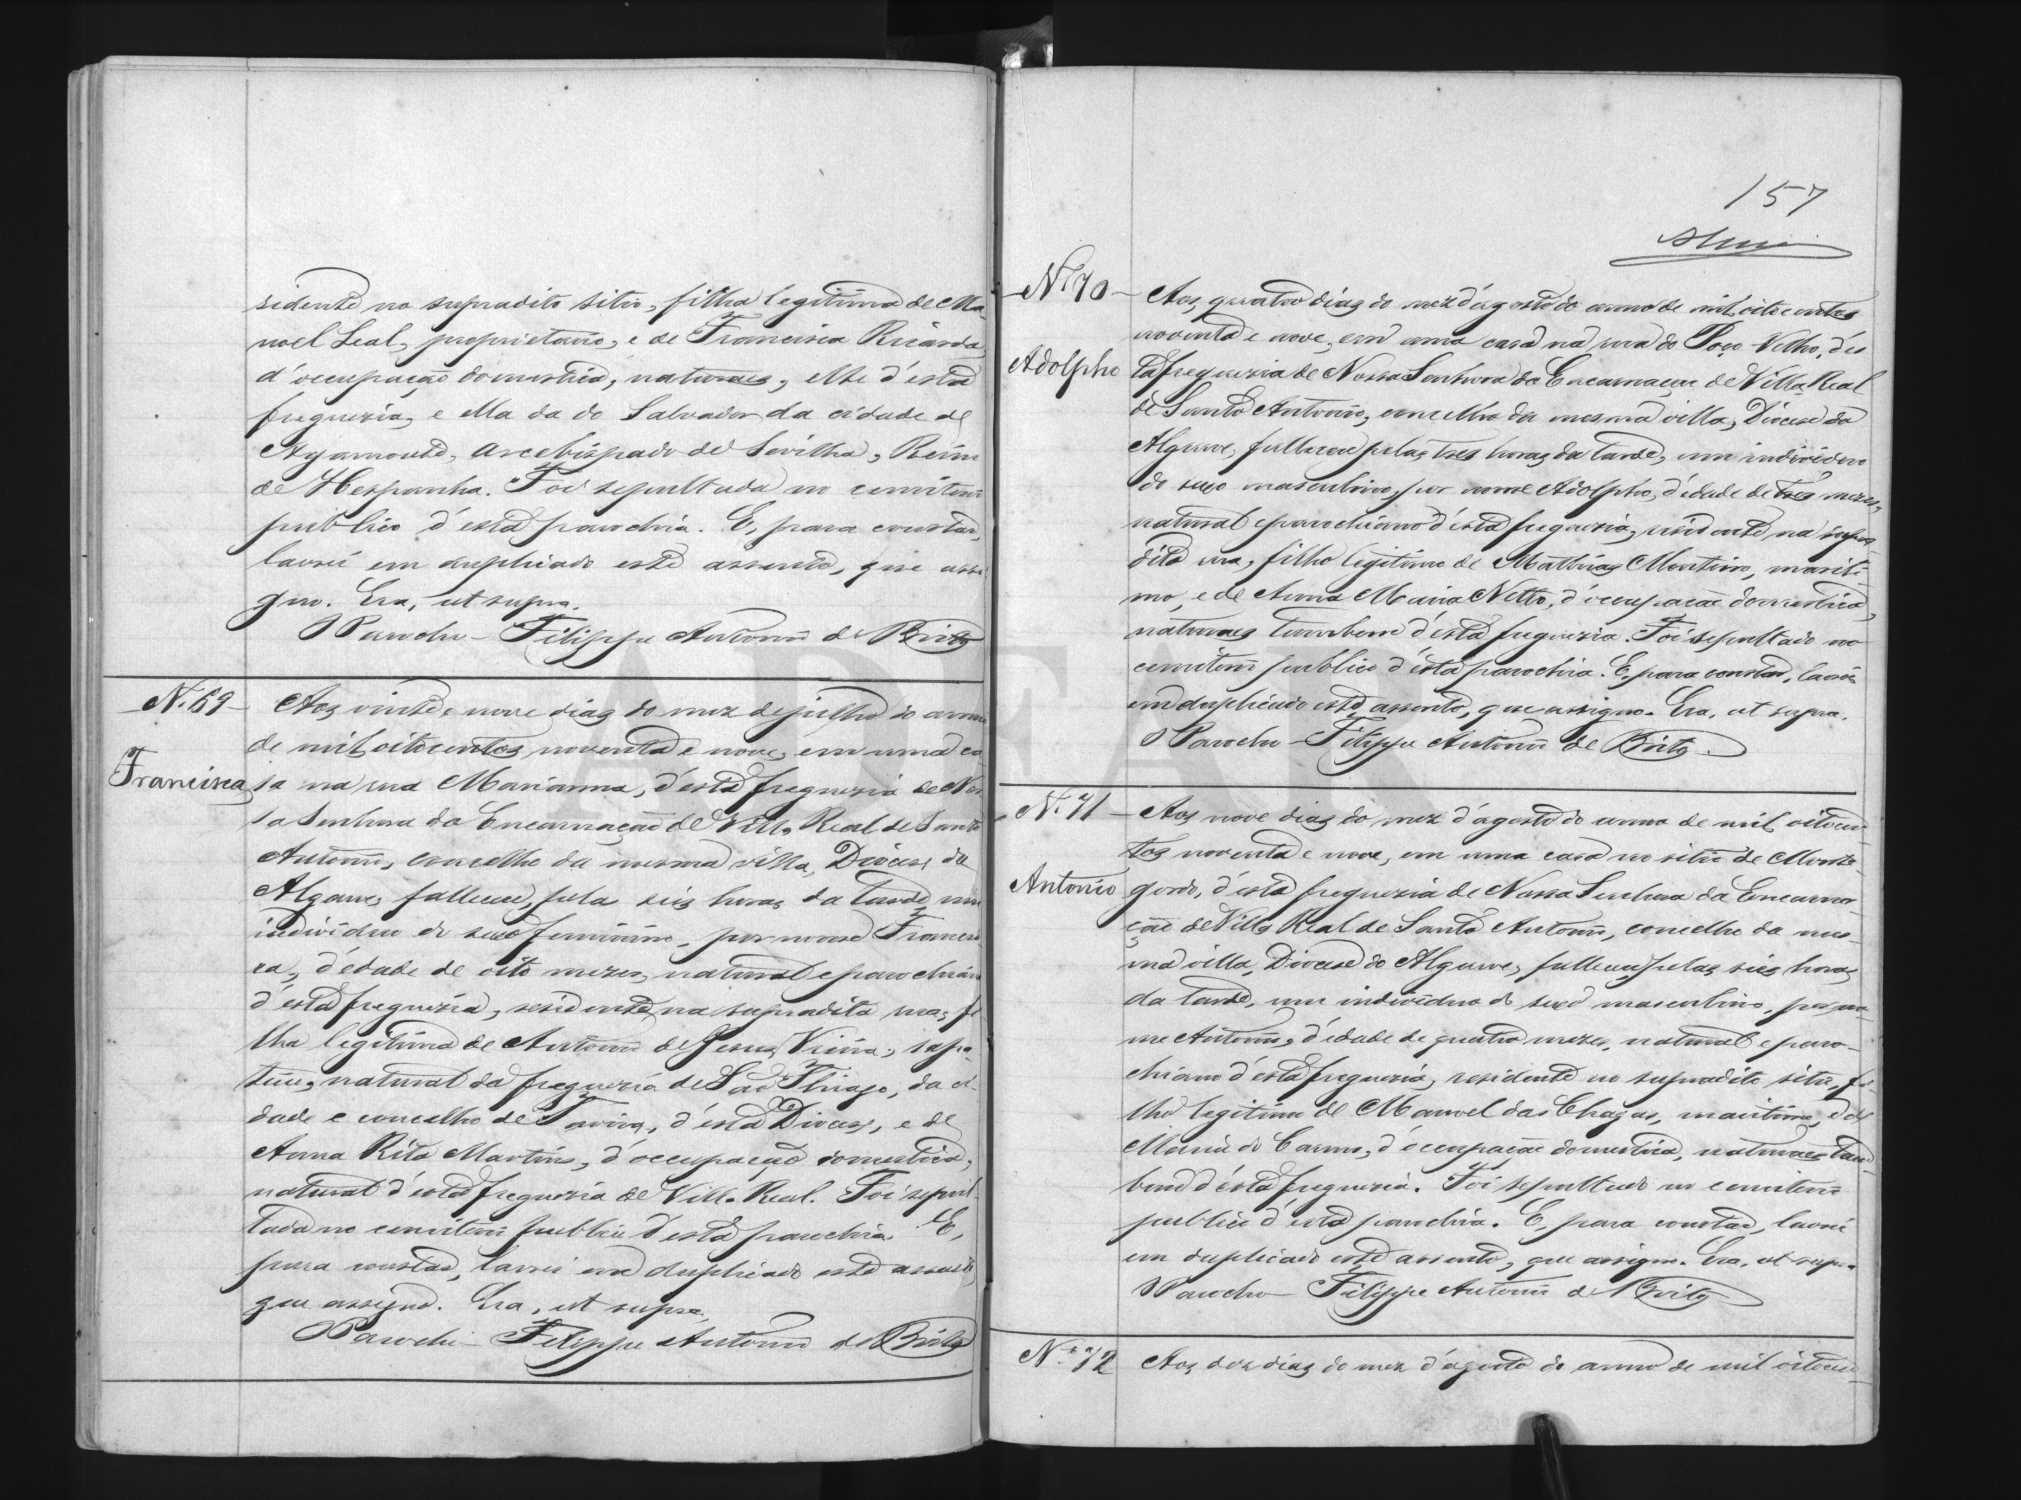 sidente no supradito sitio, filha legitima de Ma-
noel Leal, proprietario, e de Francisca Ricarda,
d'occupação domestica, naturaes, elle d'esta
freguezia, e ella da do Salvador da cidade de
Ayamonte, arcebispado de Sevilha, Reino
de Hespanha. Foi sepultada no cemiterio
publico d'esta parochia. E, para constar,
lavrei em duplicado este assento, que assi-
gno. Era, ut supra.
O Parocho - Filippe Antonio de Brito
N.º 69
Francisca
Aos vinte e nove dias do mez de julho do anno
de mil oitocentos noventa e nove, em uma ca-
sa na rua Marianna, d'esta freguezia de Nos-
sa Senhora da Encarnação de Villa Real de Santo
Antonio, concelho da mesma villa, Diocese do
Algarve, falleceu, pelas seis horas da tarde, um
individuo do sexo feminino, por nome Francis-
ca, d'edade de oito mezes, natural e parochiana
d'esta freguezia, residente na supradita rua, fi-
lha legitima de Antonio de Jesus Vieira, sapa-
teiro, natural da freguezia de São Thiago, da ci-
dade e concelho de Tavira, d'esta Diocese, e de
Anna Rita Martins, d'occupação domestica,
natural d'esta freguezia de Villa Real. Foi sepul-
tada no cemiterio publico d'esta parochia. E,
para constar, lavrei em duplicado este assento,
que assigno. Era, ut supra.
O Parocho - Filippe Antonio de Brito
157
N.º 70
Adolpho
Aos quatro dias do mez d'agosto do anno de mil oitocentos
noventa e nove, em uma casa na rua do Poço-Velho, d'es-
ta freguezia de Nossa Senhora da Encarnação de Villa Real
de Santo Antonio, concelho da mesma villa, Diocese do
Algarve, falleceu pelas tres horas da tarde, um individuo
do sexo masculino, por nome Adolpho, d'edade de tres mezes,
natural e parochiano d'esta freguezia, residente na supra-
dita rua, filho legitimo de Mathias Martins, mariti-
mo, e de Anna Maria Netto, d'occupação domestica,
naturaes tambem d'esta freguezia. Foi sepultado no
cemiterio publico d'esta parochia. E, para constar, lavrei
em duplicado este assento, que assigno. Era, ut supra.
O Parocho - Filippe Antonio de Brito
N.º 71
Antonio
Aos nove dias do mez d'agosto do anno de mil oitocen-
tos noventa e nove, em uma casa no sitio de Monte-
gordo, d'esta freguezia de Nossa Senhora da Encarna-
ção de Villa Real de Santo Antonio, concelho da mes-
ma villa, Diocese do Algarve, falleceu pelas seis horas
da tarde, um individuo do sexo masculino, por no-
me Antonio, d'edade de quatro mezes, natural e paro-
chiano d'esta freguezia, residente no supradito sitio, fi-
lho legitimo de Manoel das Chagas, maritimo, e de
Maria do Carmo, d'occupação domestica, naturaes tam-
bem d'esta freguezia. Foi sepultado no cemiterio
publico d'esta parochia. E, para constar, lavrei
em duplicado este assento, que assigno. Era, ut supra.
O Parocho - Filippe Antonio de Brito
N.º 72
Aos dez dias do mez d'agosto do anno de mil oitocen-